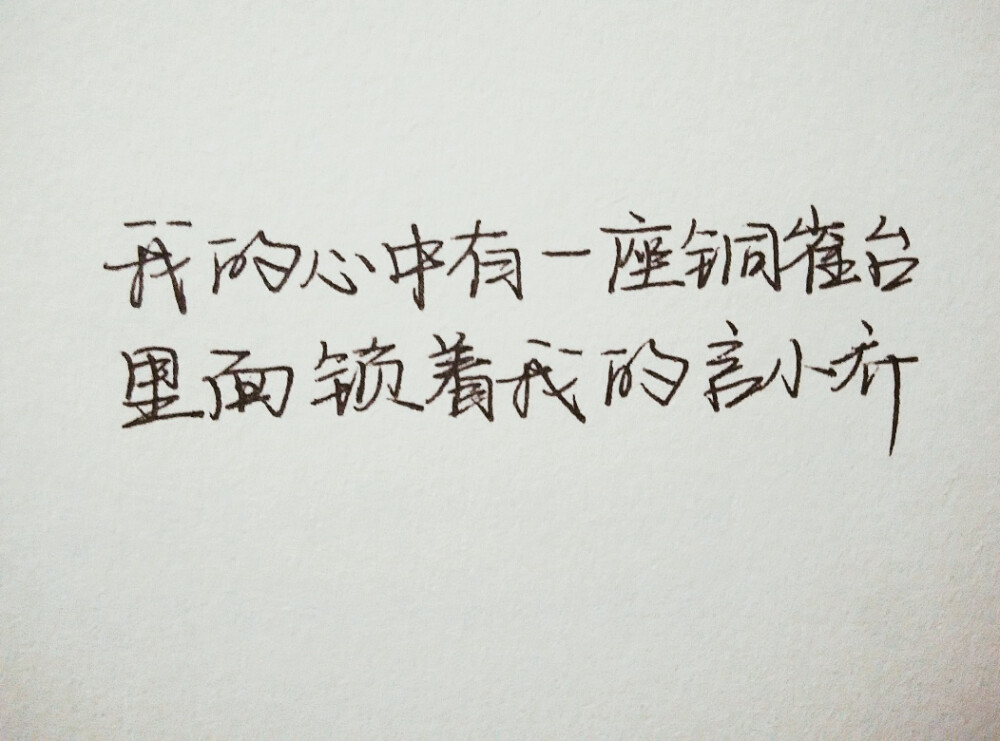 我的心中有一座铜雀台
里面锁着我的言小乔